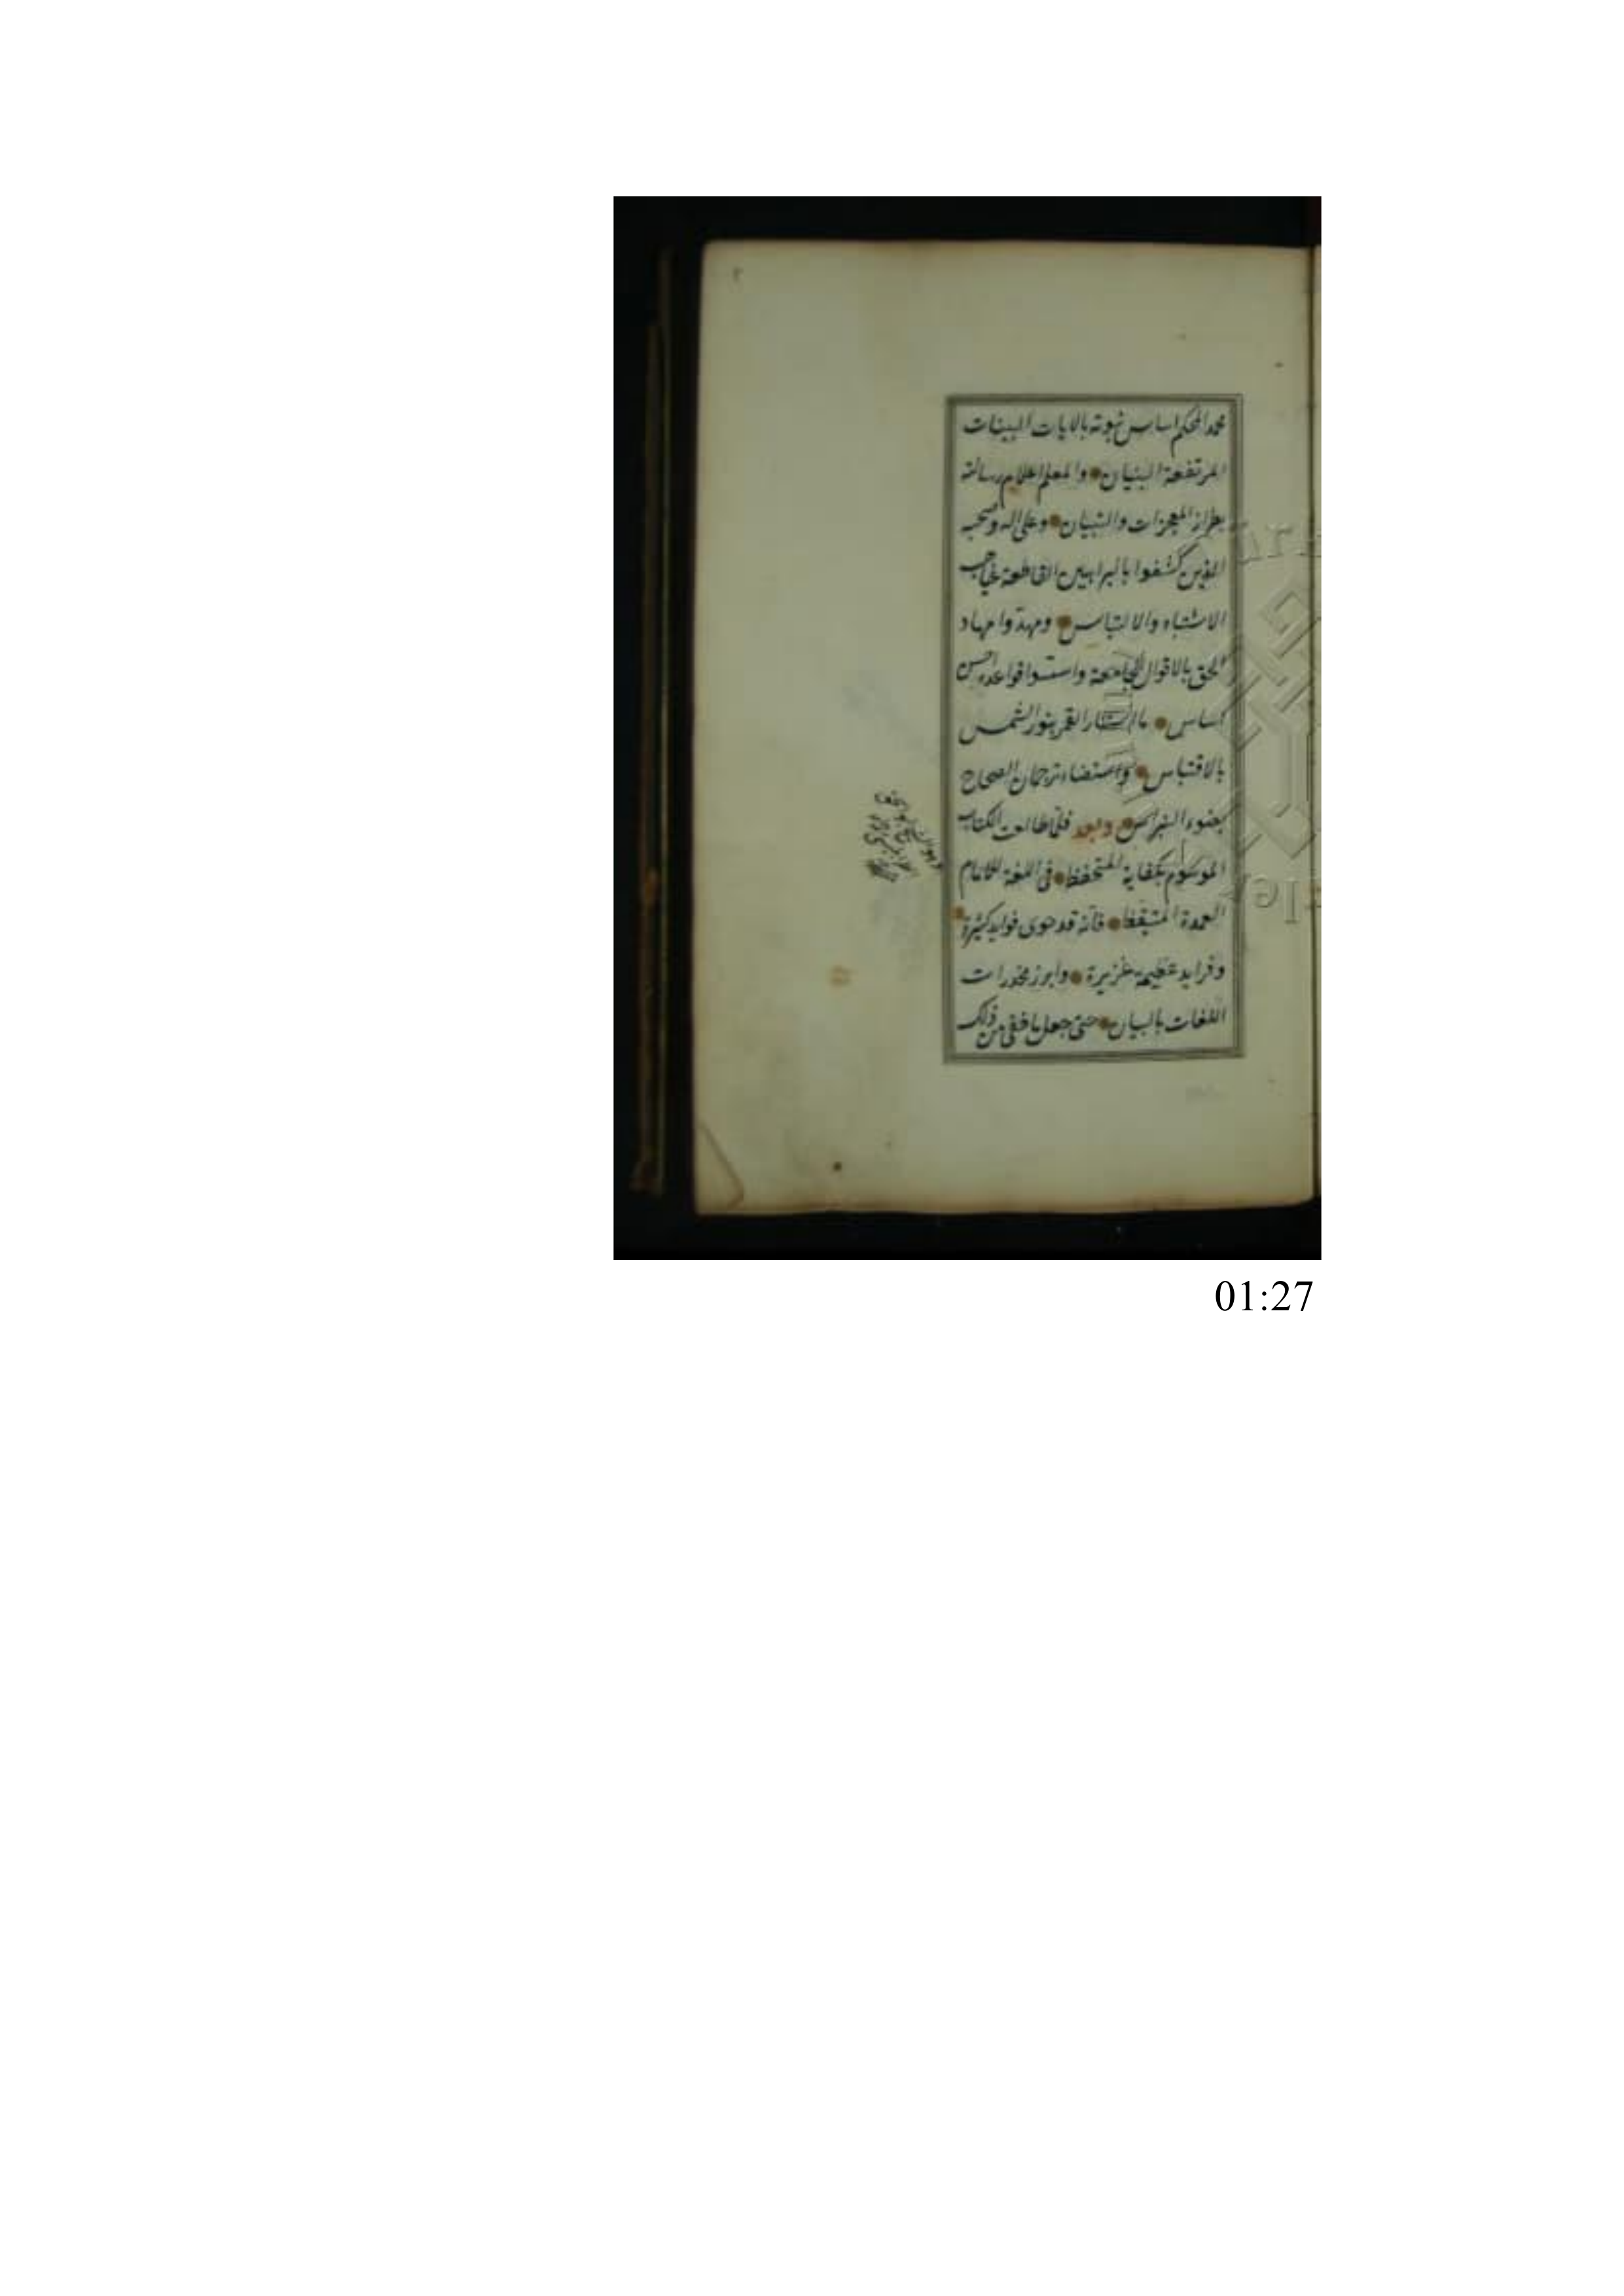 محمد المحكم اساس نبوته بالايات البينات
المرتفعة البنيان والمعلم اعلام رسالته
بطراز المعجزات والتبيان وعلى اله وصحبه
الذين كشفوا بالبراهين القاطعة غياهب
الاشتباه والالتباس ومهدوا مهاد
الحق بالاقوال الجامعة واسسوا قواعده احسن
اساس ما استنار القمر بنور الشمس
بالاقتباس واستضاء ترجمان الصحاح
بضوء النبراس وبعد فلما طالعت الكتاب
الموسوم بكفاية المتحفظ في اللغة للامام
العمدة المتيقظ فانه قد حوى فوايد كثيرة
وفرايد عظيمة غزيرة وابرز مخدرات
اللغات بالبيان حتى جعل ما خفي من ذلك
01:27